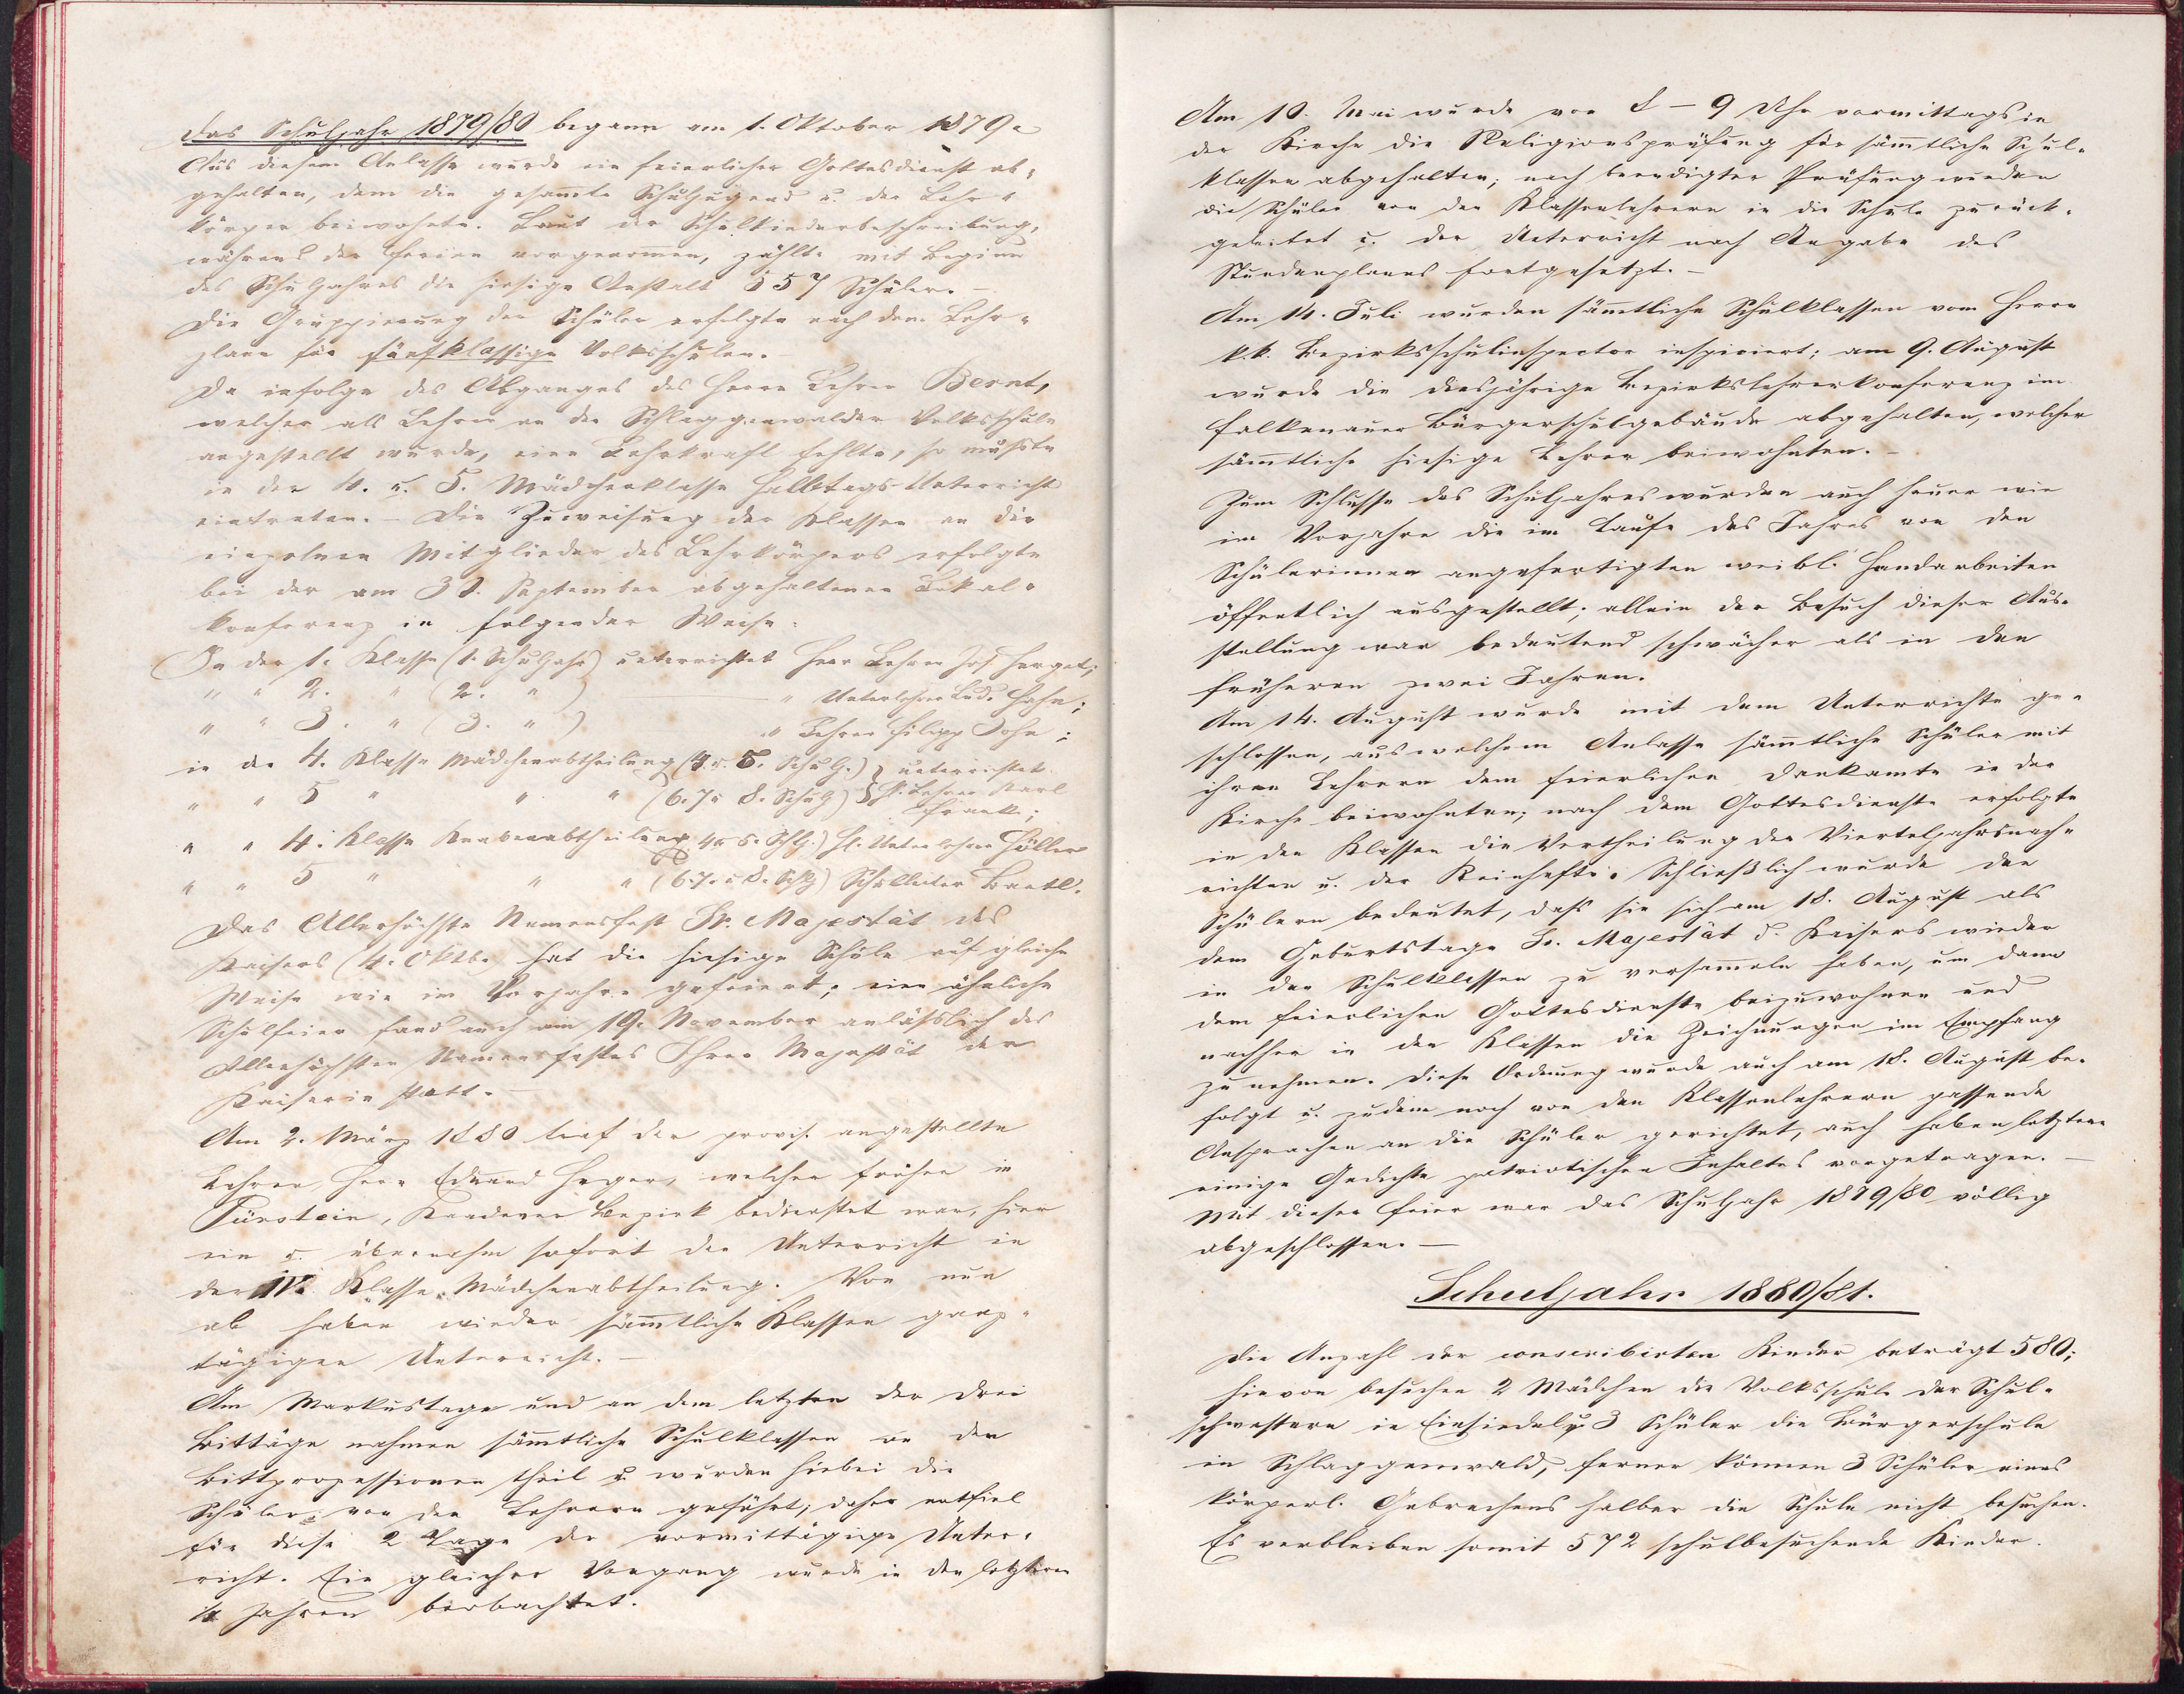 Das Schuljahr 1879/80 begann am 1. Oktober 1879.
Aus diesem Anlasse wurde ein feierlicher Gottesdienst ab-
gehalten, dem die gesam̄te Schuljugend u. der Lehr-
körper beiwohnte. Laut der Schulkinderbeschreibung,
während der Ferien vorgenom̄en, zählte mit Beginn
des Schuljahres die hiesige Anstalt 557 Schüler. –
Die Gruppierung der Schüler erfolgte nach dem Lehr-
plane für fünfklassige Volksschulen.
Da infolge des Abganges des Herrn Lehrer Bernt,
welcher als Lehrer an der Schlaggenwalder Volksschule
angestellt wurde, eine Lehrkraft fehlte, so mußte
in der 4. u. 5. Mädchenklasse Halbtags-Unterricht
eintreten. – Die Zuweisung der Klassen an die
einzelnen Mitglieder des Lehrkörpers erfolgte
bei der am 30. September abgehaltenen Lokal-
konferenz in folgender Weise:
In der 1. Klasse (1. Schuljahr) unterrichtet Herr Lehrer Joh. Herget;
" " 2. " (2. " ) " Unterlehrer Lud. Hahn;
" " 3. " (3. " ) " Lehrer Filipp John;
in der 4. Klasse Mädchenabtheilung (4. u. 5. Schulj.) } unterrichtet
" " 5 " " " (6. 7 u 8. Schulj) } H. Lehrer Karl
Frank;
" " 4. Klasse Knabenabtheilung 4 u 5. Schlj.) H. Unterlehrer Höller
" " 5 " " " (6. 7. u 8. Schlj) Schulleiter Bartl.
Das Allerhöchste Namensfest Sr. Majestät des
Kaisers (4. Oktbr. hat die hiesige Schule auf gleiche
Weise wie im Vorjahre gefeiert; eine ähnliche
Schulfeier fand auch am 19. November anläßlich des
Allerhöchsten Namensfestes Ihrer Majestät der
Kaiserin statt. –
Am 2. März 1880 traf der provis. angestellte
Lehrer, Herr Eduard Heger, welcher früher in
Pürstein, Kaadener Bezirk bedienstet war, hier
ein u. übernahm sofort den Unterricht in
der IV. Klasse Mädchenabtheilung. Von nun
ab haben wieder säm̄tliche Klassen ganz-
tägigen Unterricht. –
Am Markustage und an dem letzten der drei
Bittage nahmen säm̄tliche Schulklassen an den
Bittprozessionen theil u. wurden hiebei die
Schüler von den Lehrern geführt; daher entfiel
für diese 2 Tage der vormittägige Unter-
richt. Ein gleicher Vorgang wurde in den letzteren
Jahren beobachtet.
Am 10. Mai wurde von 8 – 9 Uhr vormittags in
der Kirche die Religionsprüfung für säm̄tliche Schul-
klassen abgehalten; nach beendigter Prüfung wurden
die Schüler von den Klassenlehrern in die Schule zurück-
geleitet u. der Unterricht nach Angabe des
Stundenplanes fortgesetzt. –
Am 14. Juli wurden säm̄tliche Schulklassen vom Herrn
k. k. Bezirksschulinspector inspiciert; am 9. August
wurde die diesjährige Bezirkslehrerkonferenz im
Falkenauer Bürgerschulgebäude abgehalten, welcher
säm̄tliche hiesige Lehrer beiwohnten. –
Zum Schlusse des Schuljahres wurden auch heuer wie
im Vorjahre die im Laufe des Jahres von den
Schülerinnen angefertigten weibl. Handarbeiten
öffentlich ausgestellt; allein der Besuch dieser Aus-
stellung war bedeutend schwächer als in den
früheren zwei Jahren.
Am 14. August wurde mit dem Unterrichte ge-
schlossen, aus welchem Anlasse säm̄tliche Schüler mit
ihren Lehrern dem feierlichen Dankamte in der
Kirche beiwohnten; nach dem Gottesdienste erfolgte
in den Klassen die Vertheilung der Vierteljahrsnach-
richten u. der Reinhefte. Schließlich wurde den
Schülern bedeutet, daß sie sich am 18. August als
dem Geburtstage Sr. Majestät d. Kaisers wieder
in den Schulklassen zu versam̄eln haben, um dann
dem feierlichen Gottesdienste beizuwohnen und
nachher in den Klassen die Zeichnungen im Empfang
zu nehmen. Diese Ordnung wurde auch am 18. August be-
folgt u. zudem noch von den Klassenlehrern passende
Ansprachen an die Schüler gerichtet, auch haben letztere
einige Gedichte patriotischen Inhaltes vorgetragen. –
Mit dieser Feier war das Schuljahr 1879/80 völlig
abgeschlossen. –
Schuljahr 1880/81.
Die Anzahl der conscribirten Kinder beträgt 580;
hievon besuchen 2 Mädchen die Volksschule der Schul-
schwestern in Einsiedel u. 3 Schüler die Bürgerschule
in Schlaggenwald, ferner können 3 Schüler eines
körperl. Gebrechens halber die Schule nicht besuchen.
Es verbleiben somit 572 schulbesuchende Kinder.